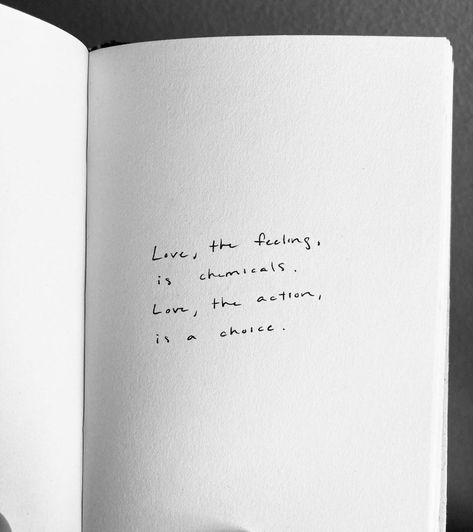 Love, the feeling,
is chemicals.
Love, the action,
is a choice.